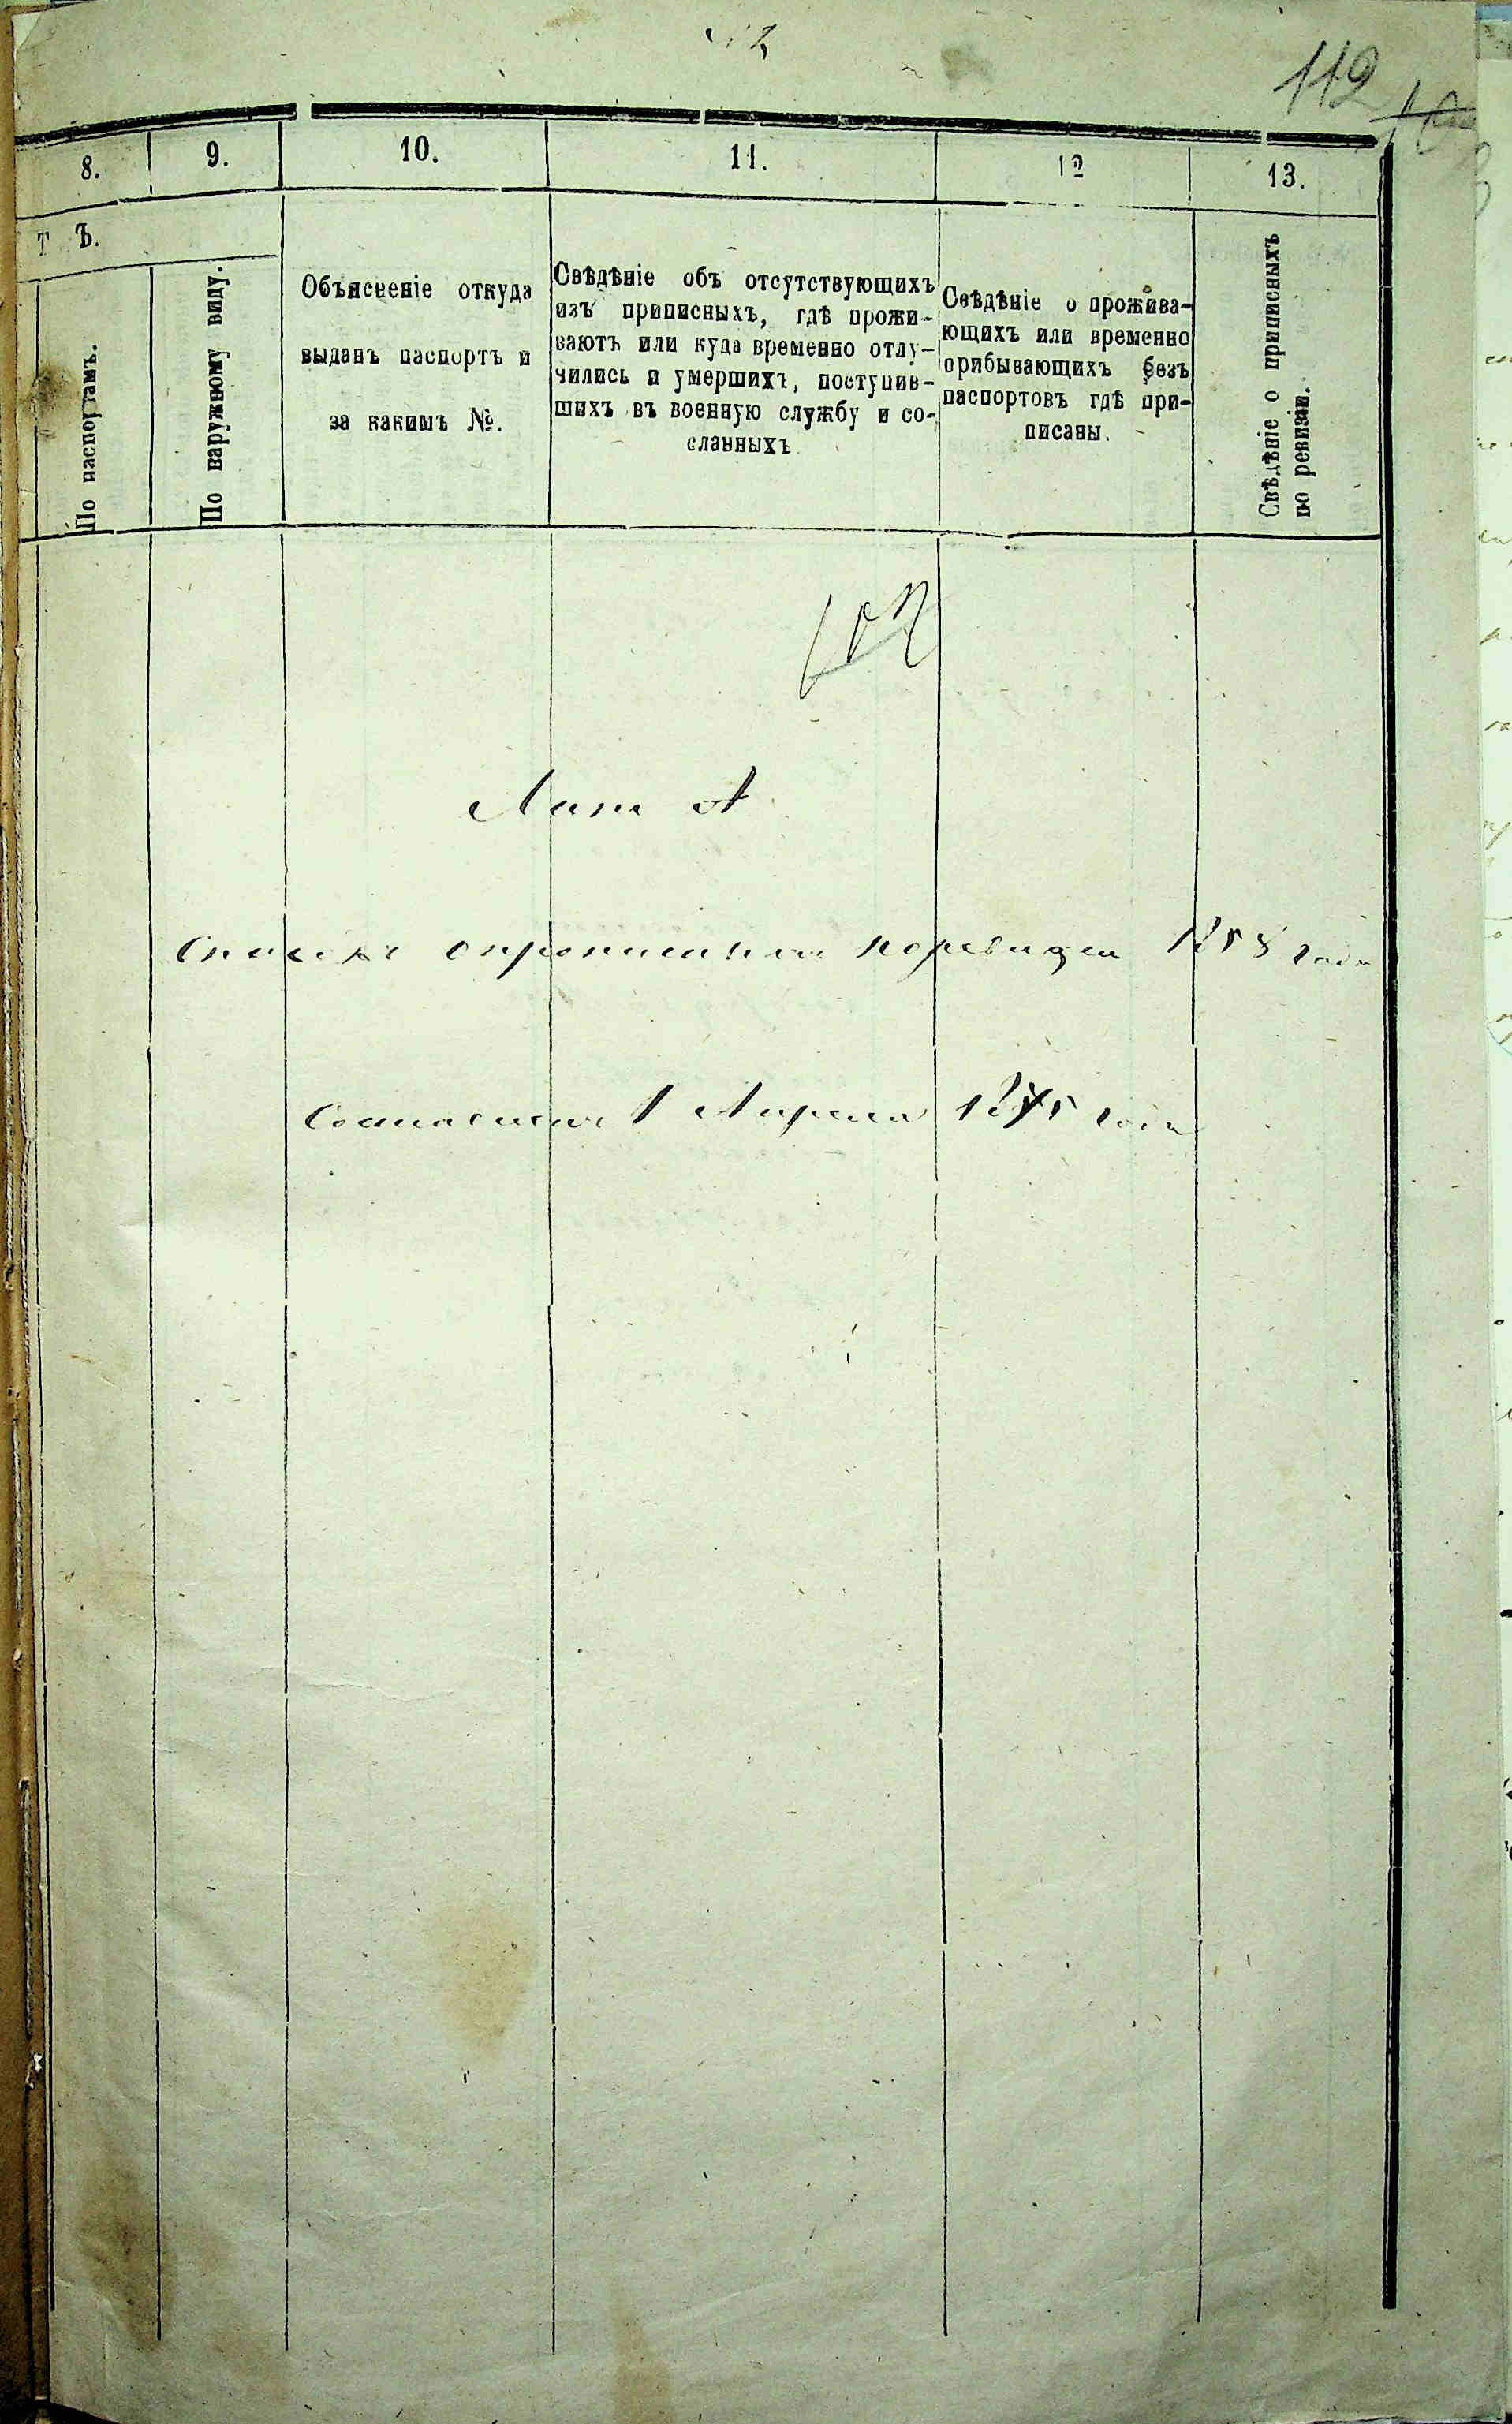 112
8.
9.
10.
11.
12
13.
т ъ.
По паспортамъ.
По наружному виду.
Объясненіе откуда
выданъ паспортъ и
за какимъ №.
Свѣдѣніе объ отсутствующихъ
изъ приписныхъ, гдѣ прожи-
ваютъ или куда временно отлу-
чились и умершихъ, поступив-
шихъ въ военную службу и со-
сланныхъ
Свѣдѣніе о прожива-
ющихъ или временно
прибывающихъ безъ
паспортовъ гдѣ при-
писаны.
Свѣдѣніе о приписныхъ
по ревизіи.
Лит А
Списокъ 1858 года
1 Апреля 1875 года